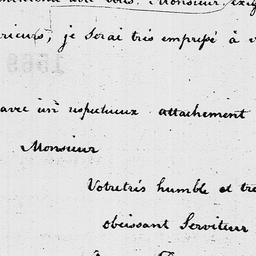 avec votre Monsieur, exig
rieurs, je serai très empressé à v
avec un respectueux attachement
Monsieur
Votre très humble et tre
obeissant Serviteur